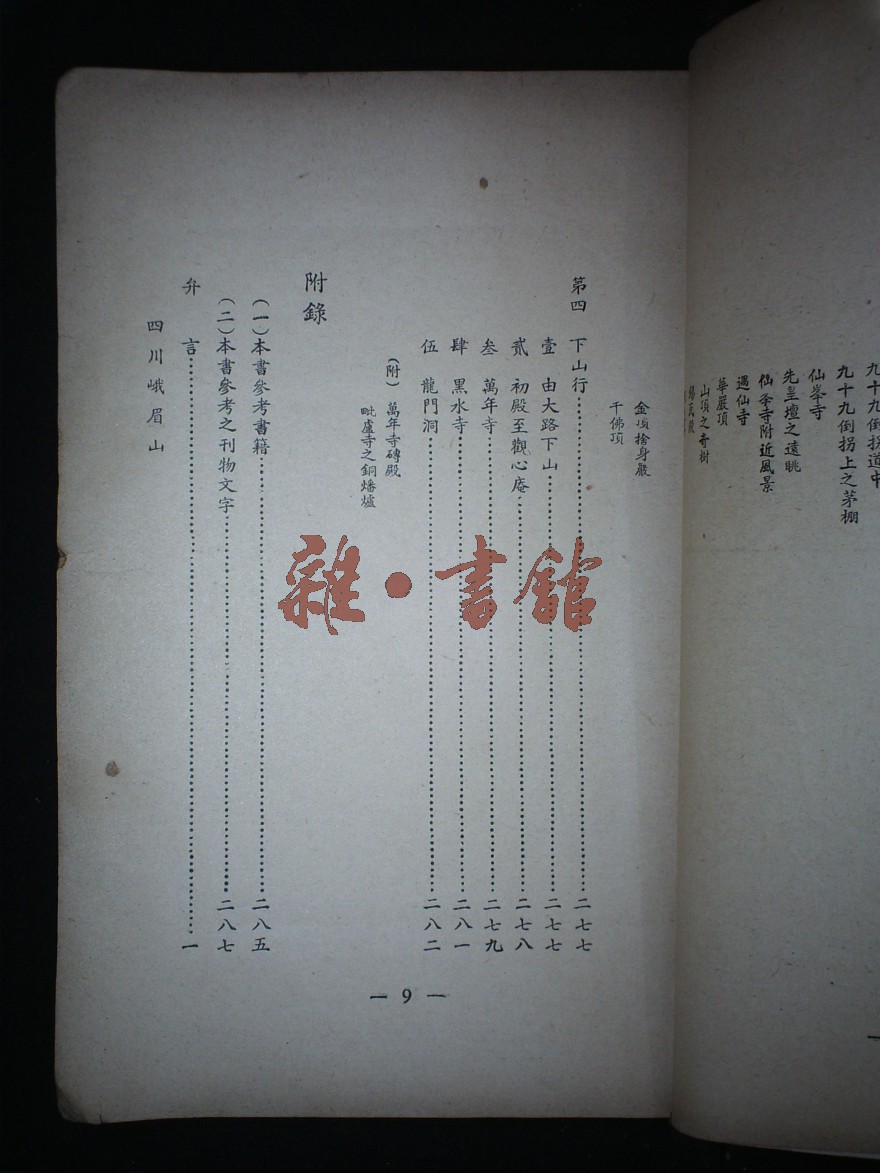 九十九倒拐道中
九十九倒拐上之茅棚
仙峯寺
先皇壇之遠眺
仙峯寺附近風景
遇仙寺
華嚴頂
山頂之奇樹
金頂捨身巖
千佛頂
第四 下山行……二七七
壹 由大路下山……二七七
貳 初殿至觀心庵……二七八
叁 萬年寺……二七九
肆 黑水寺……二八一
伍 龍門洞……二八二
(附) 萬年寺磚殿
毗盧寺之銅燔爐
附錄
(一)本書參考書籍……二八五
(二)本書參考之刊物文字……二八七
弁言……一
四川峨眉山
— 9 —
雜·書館